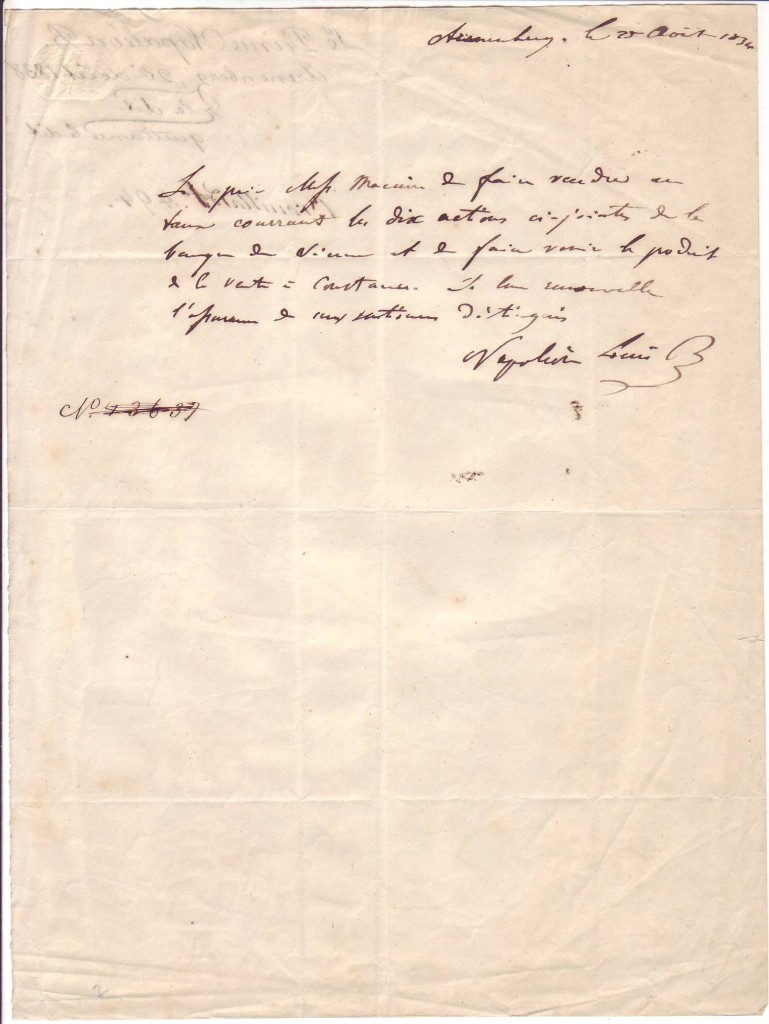 Arenenberg, le 25 Août 183
Je prie Mrs. Macaire de faire vendre au
taux courrant les dix actions ci-jointes de la
banque de Vienne et de faire venir le produit
de la vente à Constance. Je leur renouvelle
l'assurance de mes sentimens distingués
Napoléon Louis B
No.